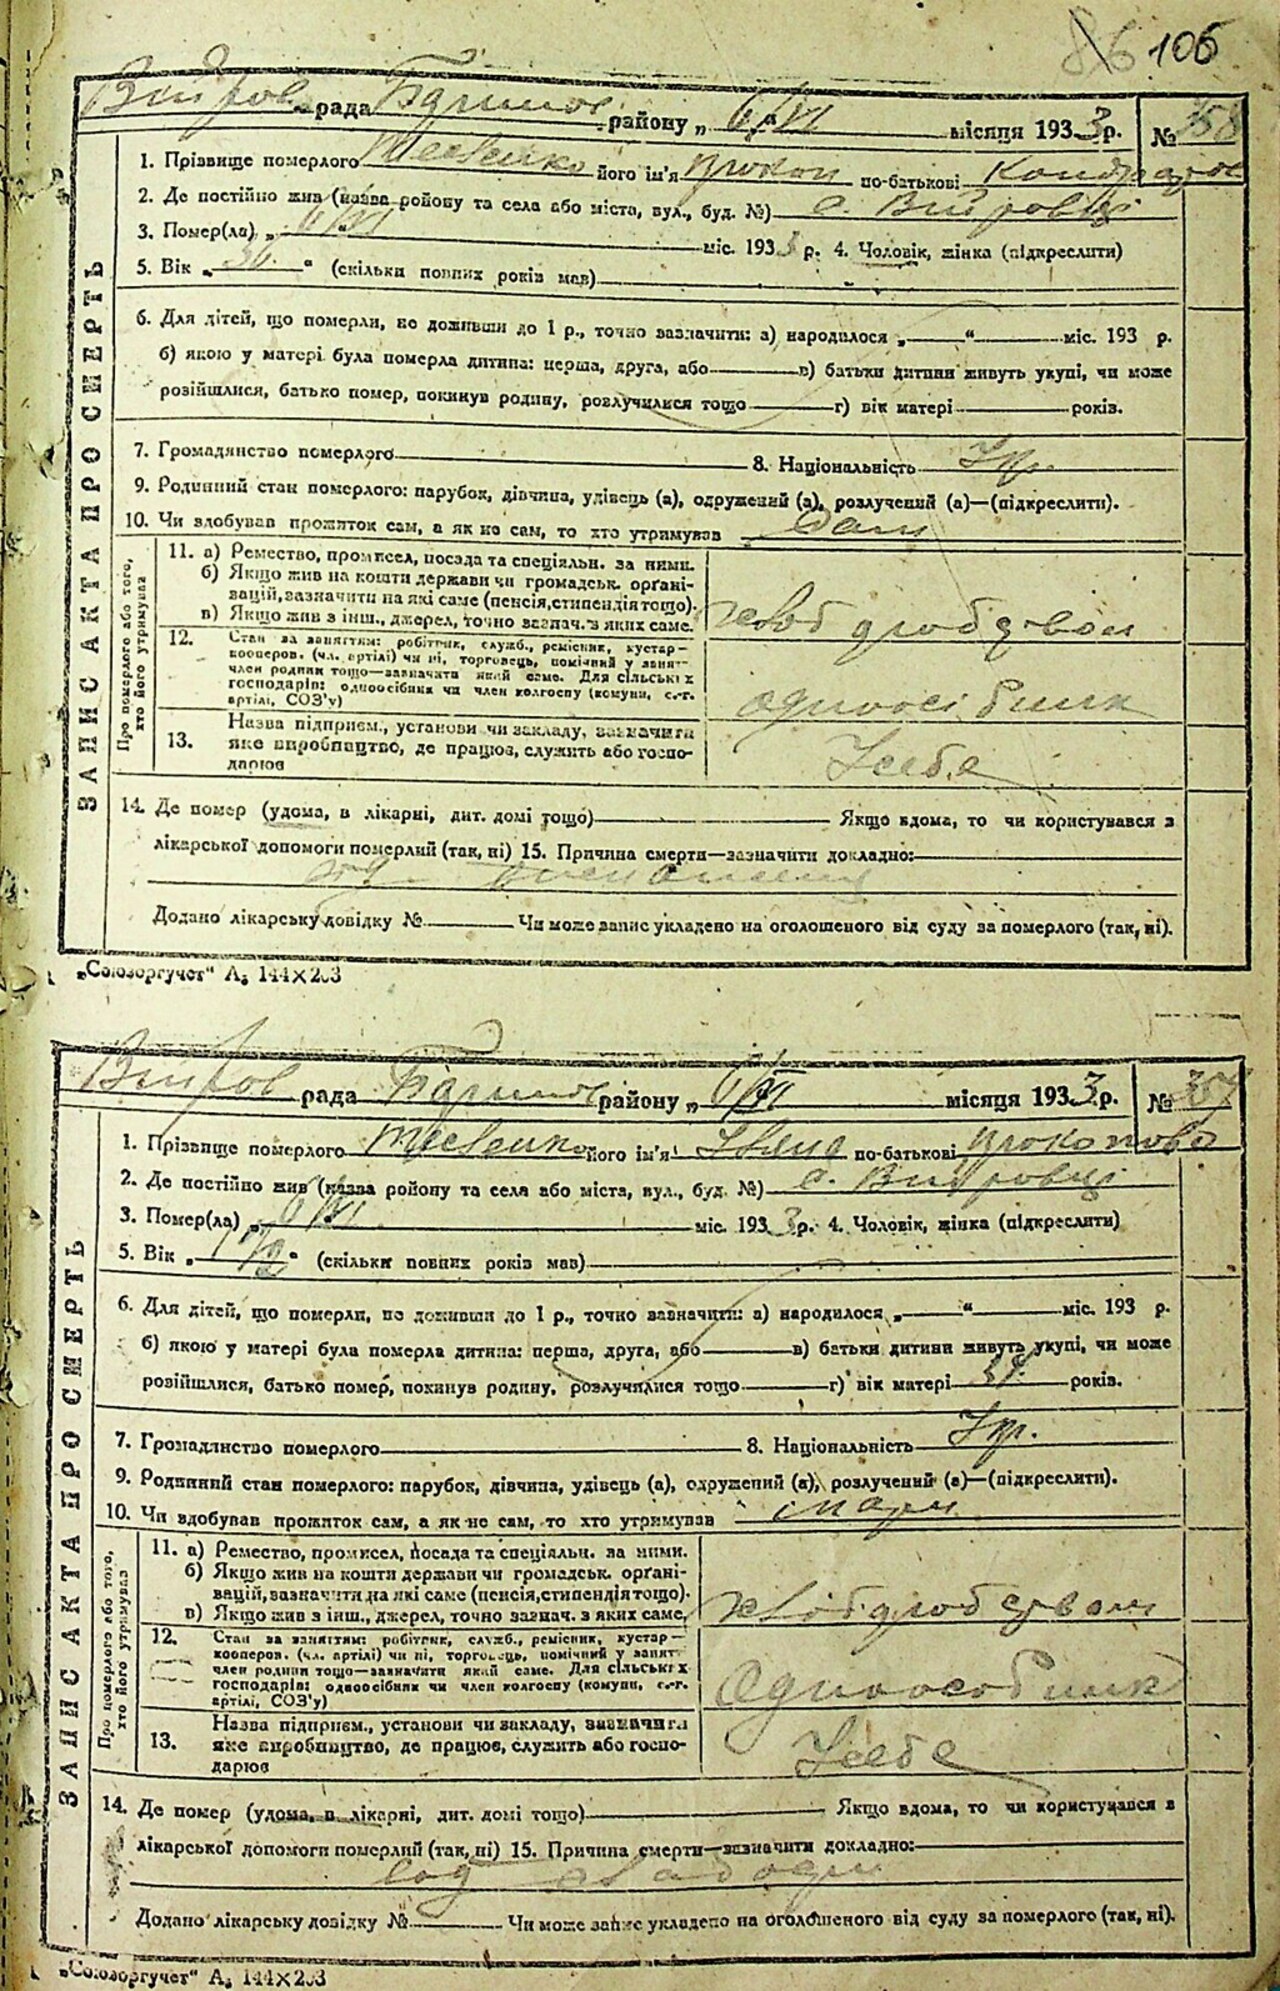 86 106
рада району „ 6/VI місяця 1933 р. № 358
1. Прізвище померлого його ім'я Прокоп по-батькові Кондратов
2. Де постійно жив (назва району та села або міста, вул., буд. №) с. Вийровці
3. Помер(ла) „ 6/VI міс. 1933 р. 4. Чоловік, жінка (підкреслити)
5. Вік „ “ (скільки повних років мав)
6. Для дітей, що померли, не доживши до 1 р., точно зазначити: а) народилося „ “ міс. 193 р.
б) якою у матері була померла дитина: перша, друга, або в) батьки дитини живуть укупі, чи може
розійшлися, батько помер, покинув родину, розлучилися тощо г) вік матері років.
7. Громадянство померлого 8. Національність Укр.
9. Родинний стан померлого: парубок, дівчина, удівець (а), одружений (а), розлучений (а)—(підкреслити).
10. Чи здобував прожиток сам, а як не сам, то хто утримував Сам
ЗАПИС АКТА ПРО СМЕРТЬ
Про померлого або того, хто його утримував
11. а) Ремество, промисел, посада та спеціяльн. за ними.
б) Якщо жив на кошти держави чи громадськ. орґані-
зацій, зазначити на які саме (пенсія, стипендія тощо).
в) Якщо жив з інш., джерел, точно зазнач. з яких саме. хліборобством
12. Стан за заняттям: робітник, служб., ремісник, кустар—
кооперов. (чл. артілі) чи ні, торговець, помічний у занят—
член родини тощо—зазначити який саме. Для сільських
господарів: одноосібник чи член колгоспу (комуни, с.-г.
артілі, СОЗ'у) одноосібник
13. Назва підприєм., установи чи закладу, зазначити
яке виробництво, де працює, служить або госпо-
дарює Усебе
14. Де помер (удома, в лікарні, дит. домі тощо) Якщо вдома, то чи користувався з
лікарської допомоги померлий (так, ні) 15. Причина смерти—зазначити докладно:
од
Додано лікарську довідку № Чи може запис укладено на оголошеного від суду за померлого (так, ні).
„Союзоргучет“ А₅ 144×203
рада району „ 6/VI місяця 1933 р. № 357
1. Прізвище померлого його ім'я Івана по-батькові Прокопова
2. Де постійно жив (назва району та села або міста, вул., буд. №) с. Вийровці
3. Помер(ла) „ 6/VI міс. 1933 р. 4. Чоловік, жінка (підкреслити)
5. Вік „ “ (скільки повних років мав)
6. Для дітей, що померли, не доживши до 1 р., точно зазначити: а) народилося „ “ міс. 193 р.
б) якою у матері була померла дитина: перша, друга, або в) батьки дитини живуть укупі, чи може
розійшлися, батько помер, покинув родину, розлучилися тощо г) вік матері років.
7. Громадянство померлого 8. Національність Укр.
9. Родинний стан померлого: парубок, дівчина, удівець (а), одружений (а), розлучений (а)—(підкреслити).
10. Чи здобував прожиток сам, а як не сам, то хто утримував
ЗАПИС АКТА ПРО СМЕРТЬ
Про померлого або того, хто його утримував
11. а) Ремество, промисел, посада та спеціяльн. за ними.
б) Якщо жив на кошти держави чи громадськ. орґані-
зацій, зазначити на які саме (пенсія, стипендія тощо).
в) Якщо жив з інш., джерел, точно зазнач. з яких саме. хліборобством
12. Стан за заняттям: робітник, служб., ремісник, кустар—
кооперов. (чл. артілі) чи ні, торговець, помічний у занят—
член родини тощо—зазначити який саме. Для сільських
господарів: одноосібник чи член колгоспу (комуни, с.-г.
артілі, СОЗ'у) Одноособник
13. Назва підприєм., установи чи закладу, зазначити
яке виробництво, де працює, служить або госпо-
дарює Усебе
14. Де помер (удома, в лікарні, дит. домі тощо) Якщо вдома, то чи користувався з
лікарської допомоги померлий (так, ні) 15. Причина смерти—зазначити докладно:
Додано лікарську довідку № Чи може запис укладено на оголошеного від суду за померлого (так, ні).
„Союзоргучет“ А₅ 144×203